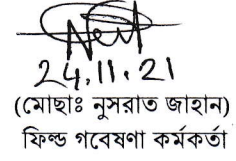 24.11.21
(মোছাঃ নুসরাত জাহান)
ফিল্ড গবেষণা কর্মকর্তা